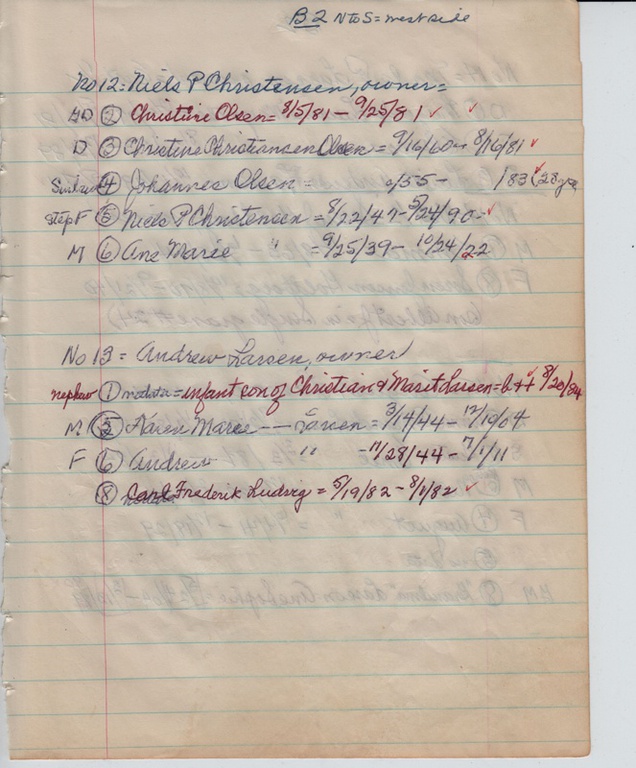 B2 N to S = west side
No 12 = Niels P Christensen, owner =
GD ② Christine Olsen = 8/5/81 – 9/25/81 ✓ ✓
D ③ Christine Christiansen Olsen = 9/16/60 – 8/16/81 ✓
④ Johannes Olsen = /55 – /83 ✓ (28 yrs
Step F ⑤ Niels P Christensen = 8/22/47 – 5/24/90 – ✓
M ⑥ Ane Marie " = 9/25/39 – 10/24/22
No 13 = Andrew Larsen, owner
nephew ① no data = infant son of Christian & Marit Larsen = b + ✓ 8/20/84
M ⑤ Karen Marie –– Larsen = 3/14/44 – 12/10/04
F ⑥ Andrew " – 11/28/44 – 7/1/11
⑧ Carl Frederik Ludvig = 5/19/82 – 8/1/82 ✓